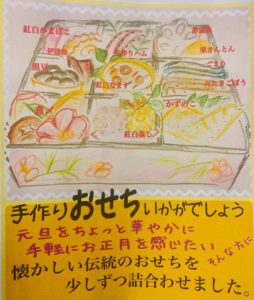 紅白かまぼこ
伊達巻
手作りハム
栗きんとん
黒豆
ごまめ
紅白なます
たたきごぼう
かずのこ
紅白蒸し
手作りおせちいかがでしょう
元旦をちょっと華やかに
手軽にお正月を感じたい
そんな方に
懐かしい伝統のおせちを
少しずつ詰合わせました。